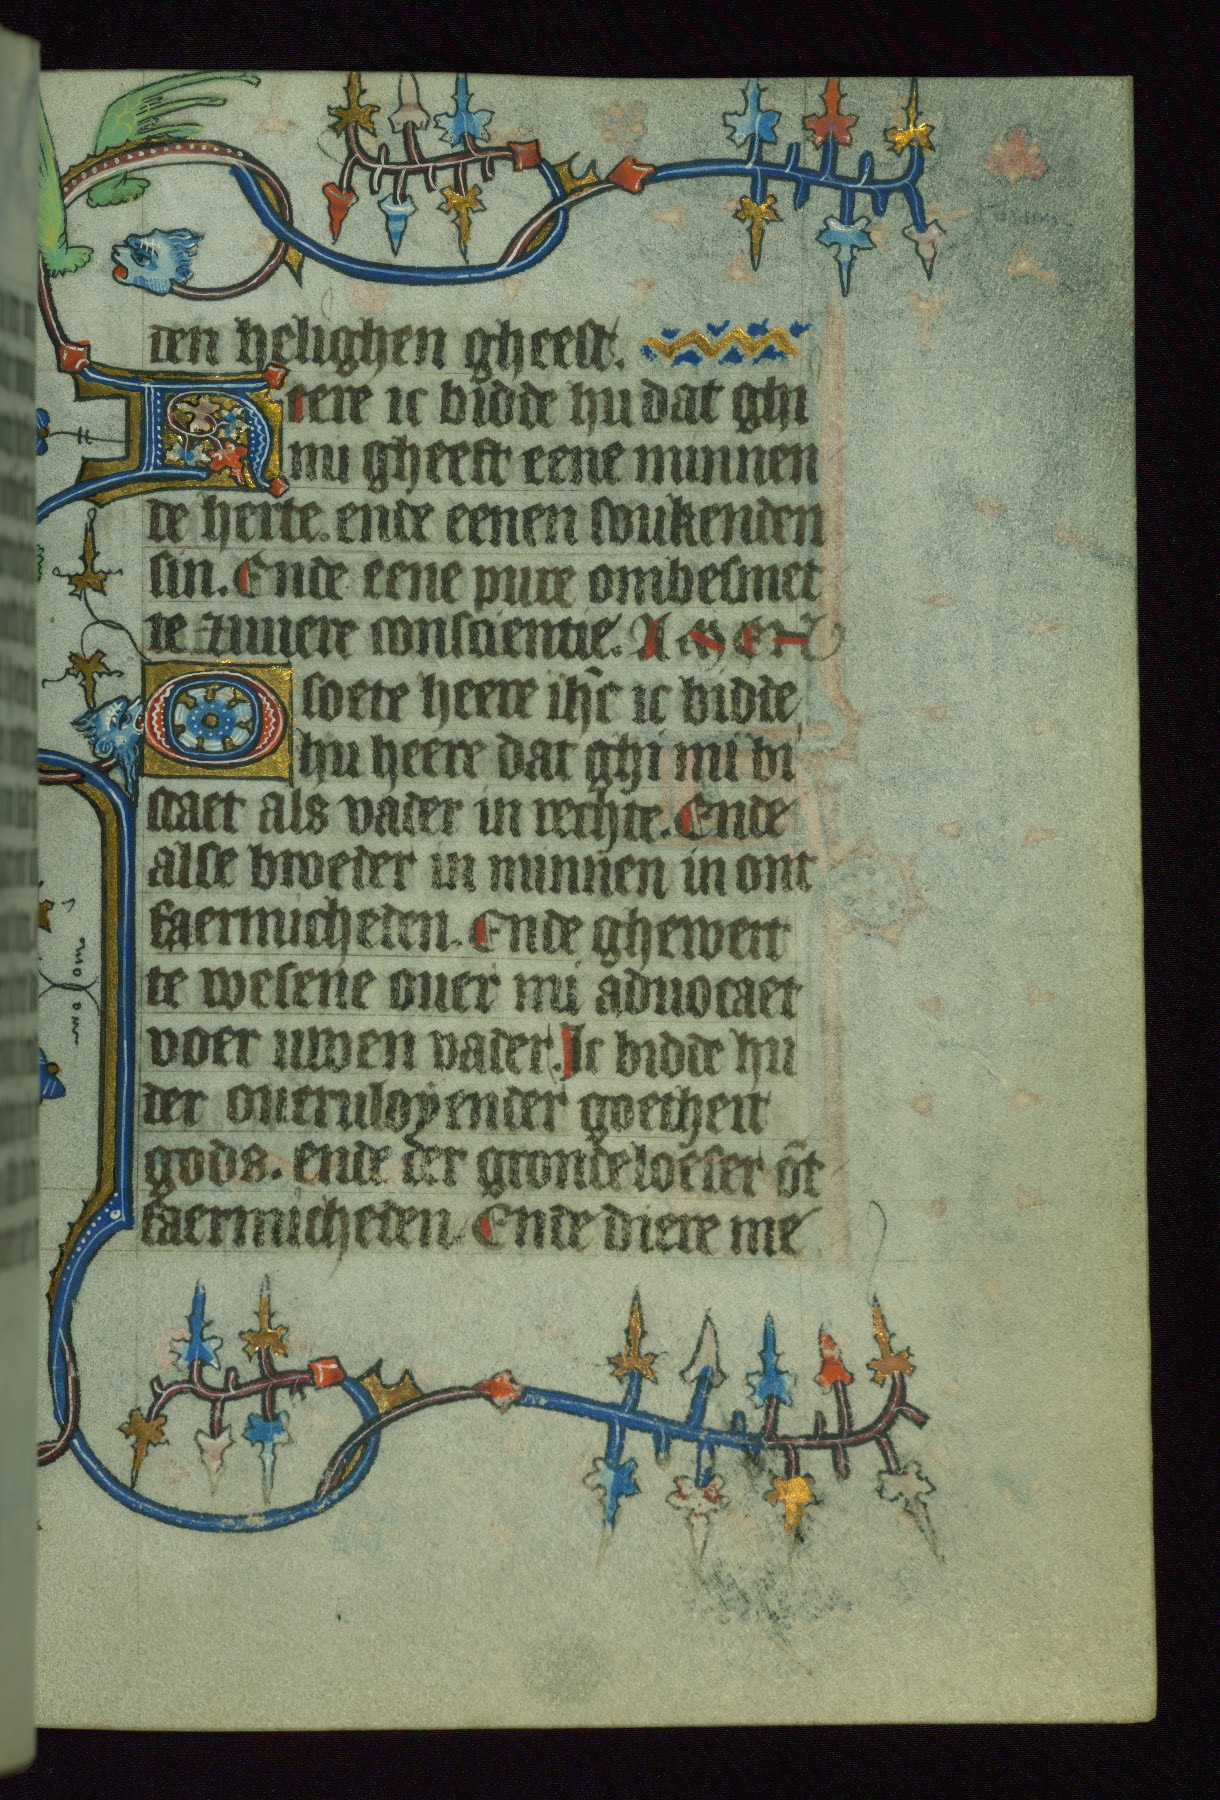 den helighen gheest.
Heere ic bidde hu dat ghi
mi gheeft eene minnen
de herte. ende eenen soukenden
sin. Ende eene pure ombesmet
te zuuere consciencie. AMEN
O soete heere ihc ic bidde
hu heere dat ghi mi bi
staet als vader in rechte. Ende
alse broeder in minnen in ont
faermicheden. Ende ghewert
te wesene ouer mi aduocaet
voer uwen vader. Ic bidde hu
der oueruloyender goetheit
gods. ende der grondeloeser ōt
faermicheden. Ende diere me